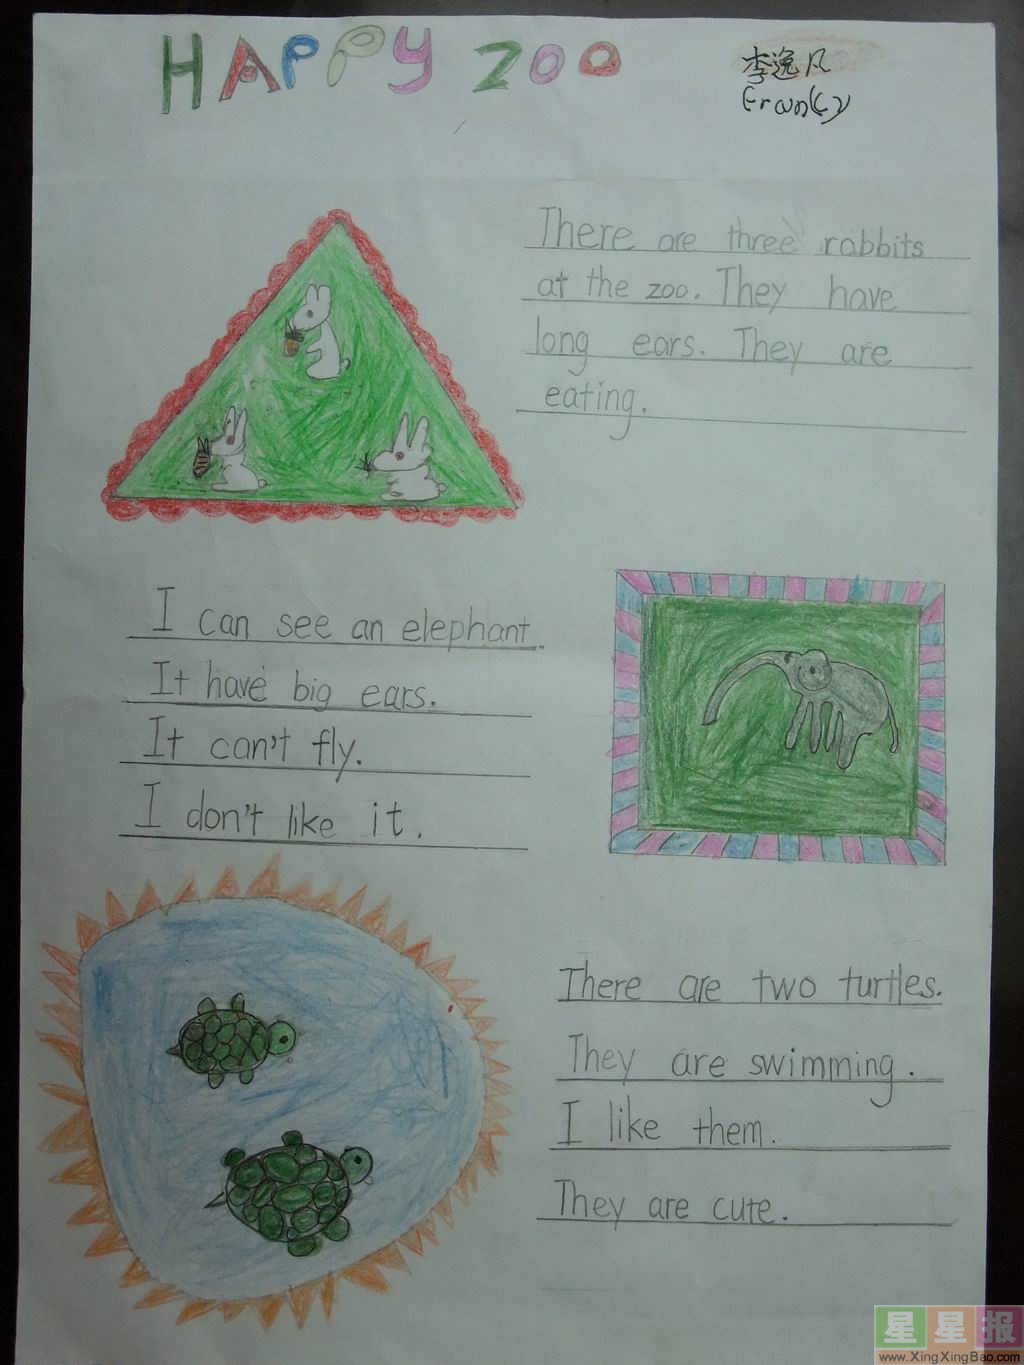 HAPPY ZOO
李逸凡
Franky
There are three rabbits
at the zoo. They have
long ears. They are
eating.
I can see an elephant.
It have big ears.
It can't fly.
I don't like it.
There are two turtles.
They are swimming.
I like them.
They are cute.
星星报
www.XingXingBao.com